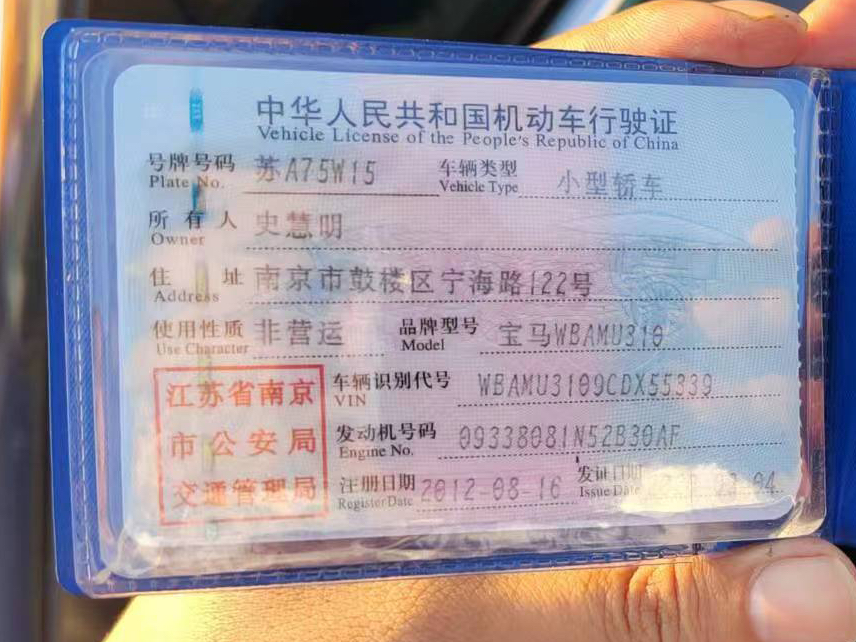 中华人民共和国机动车行驶证
Vehicle License of the People's Republic of China
号牌号码 苏A75W15 车辆类型 小型轿车
Plate No. Vehicle Type
所有人 史慧明
Owner
住址 南京市鼓楼区宁海路122号
Address
使用性质 非营运 品牌型号 宝马WBAMU310
Use Character Model
江苏省南京
市公安局
交通管理局
车辆识别代号 WBAMU3109CDX55339
VIN
发动机号码 09338081N52B30AF
Engine No.
注册日期 2012-08-16 发证日期
Register Date Issue Date